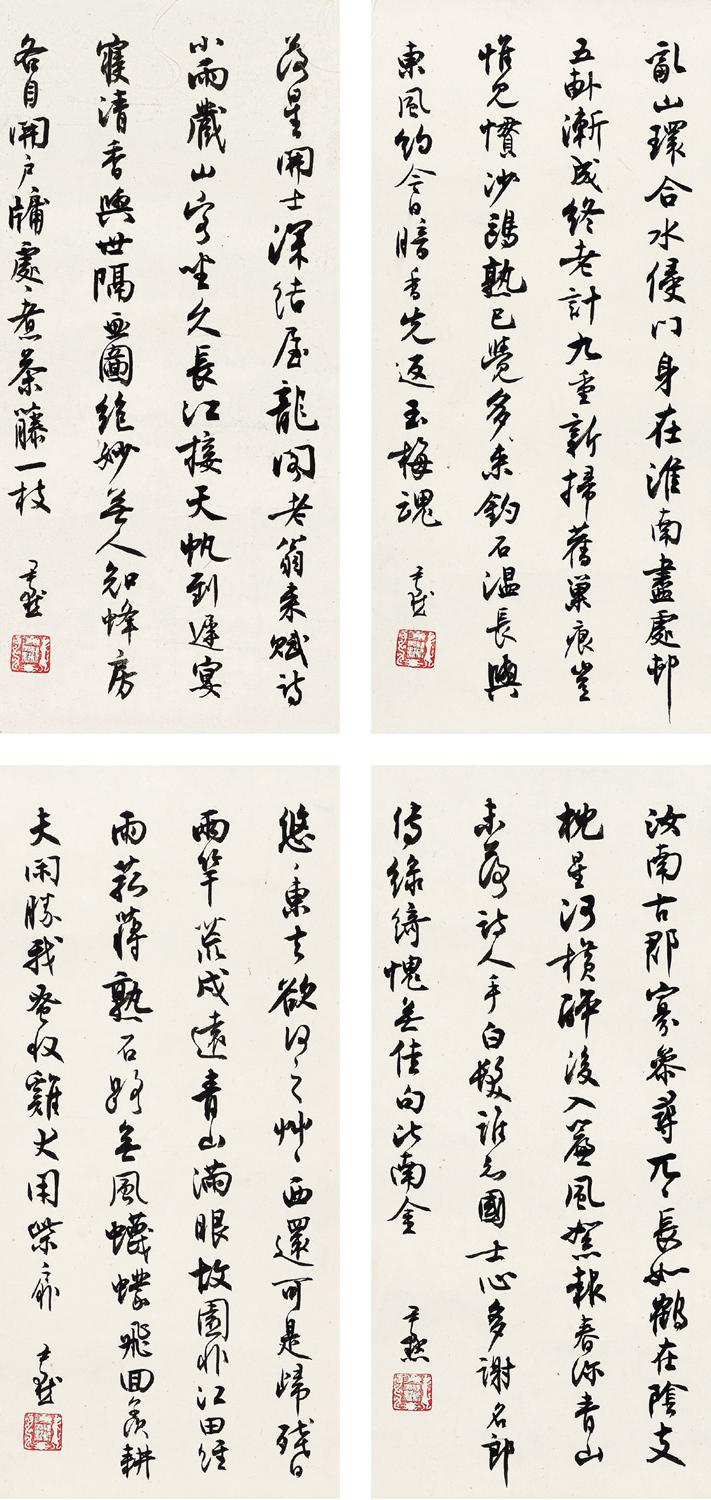 亂山環合水侵門身在淮南盡處邨
五畝漸成終老計九重新掃舊巢痕豈
惟見慣沙鷗熟已覺多來釣石溫長與
東風約今日暗香先返玉梅魂
尹默
落星開士深結屋龍閣老翁來賦詩
小雨藏山客坐久長江接天帆到遲宴
寢清香與世隔畫圖絕妙無人知蜂房
各自開戶牖處、煮茶藤一枝
尹默
汝南古郡寡參尋兀、長如鶴在陰支
枕星河橫醉後入簾風絮報春深青山
未落詩人手白髮誰知國士心多謝名郎
傳綠綺愧無佳句比南金
尹默
悠、東去欲何之艸、西還可是歸殘日
兩竿荒戍遠青山滿眼故園非江田經
雨菰蔣熟石無風蠛蠓飛回羨耕
夫閑勝我蚤收雞犬閉柴扉
尹默